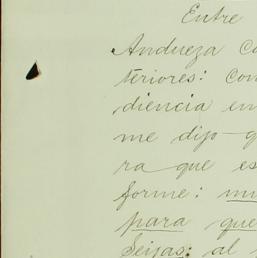 Entre
Andueza Co
teriores: Con
diencia en
me dijo q
ra que es
forme: mi
para que
Seijas: al